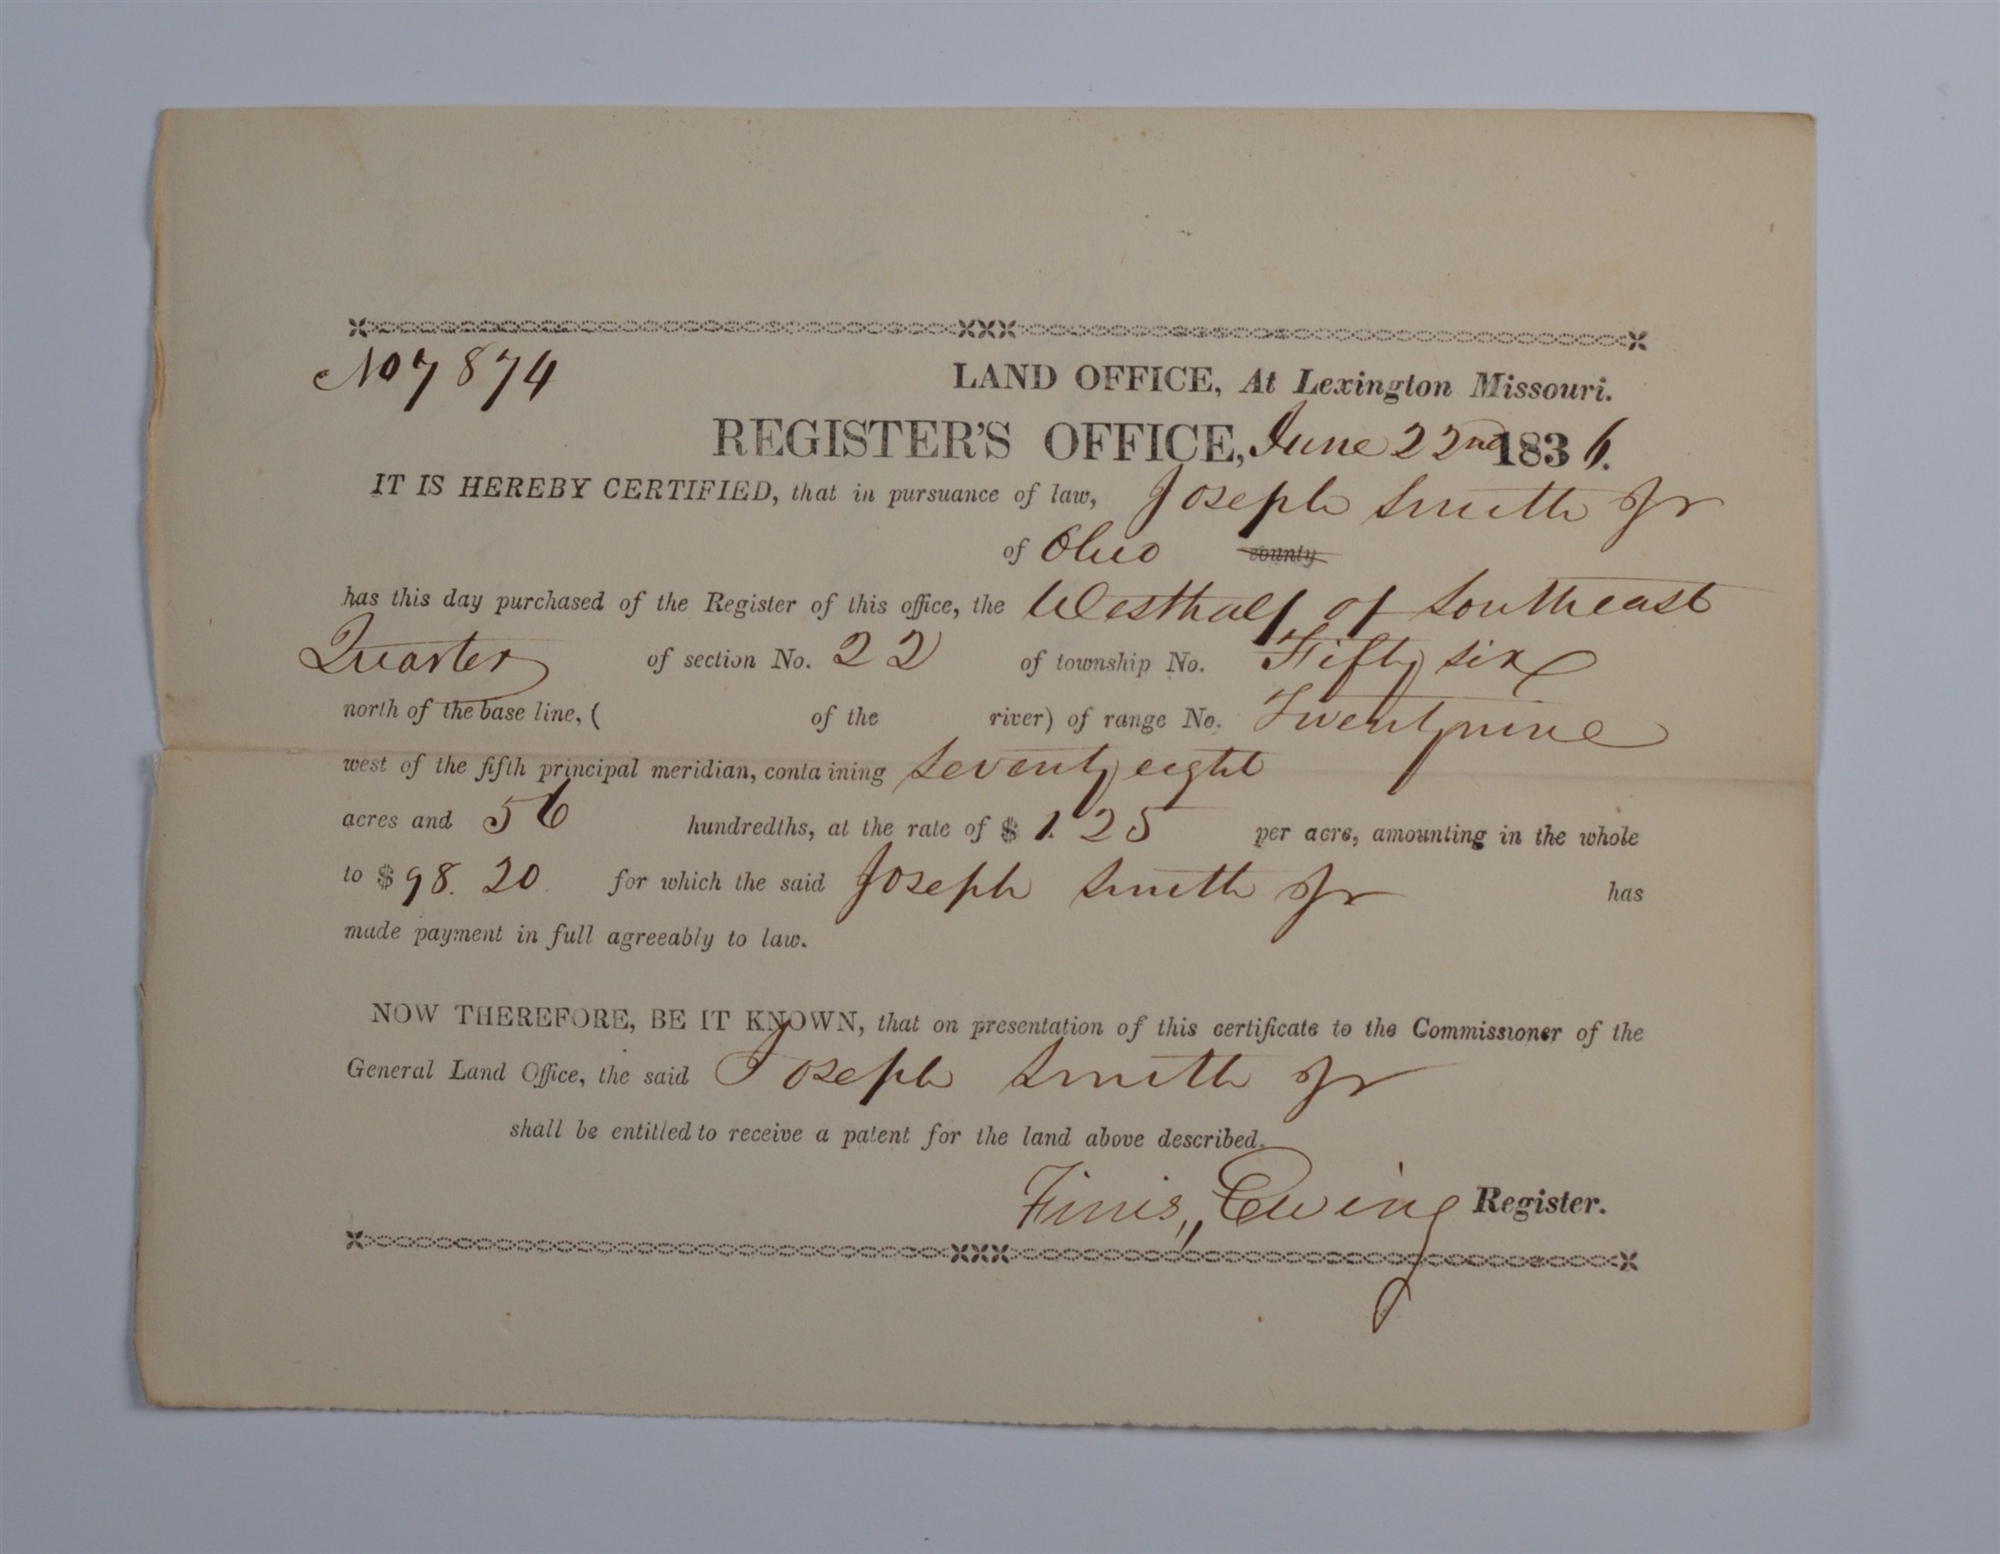 No 7874
LAND OFFICE, At Lexington Missouri.
REGISTER'S OFFICE, June 22nd 1836.
IT IS HEREBY CERTIFIED, that in pursuance of law, Joseph Smith Jr
of Ohio county
has this day purchased of the Register of this office, the Westhalf of Southeast
Quarter of section No. 22 of township No. Fifty six
north of the base line, ( of the river) of range No. Twentynine
west of the fifth principal meridian, containing Seventy eight
acres and 56 hundredths, at the rate of $ 1.25 per acre, amounting in the whole
to $ 98.20 for which the said Joseph Smith Jr has
made payment in full agreeably to law.
NOW THEREFORE, BE IT KNOWN, that on presentation of this certificate to the Commissioner of the
General Land Office, the said Joseph Smith Jr
shall be entitled to receive a patent for the land above described.
Finis,, Ewing Register.